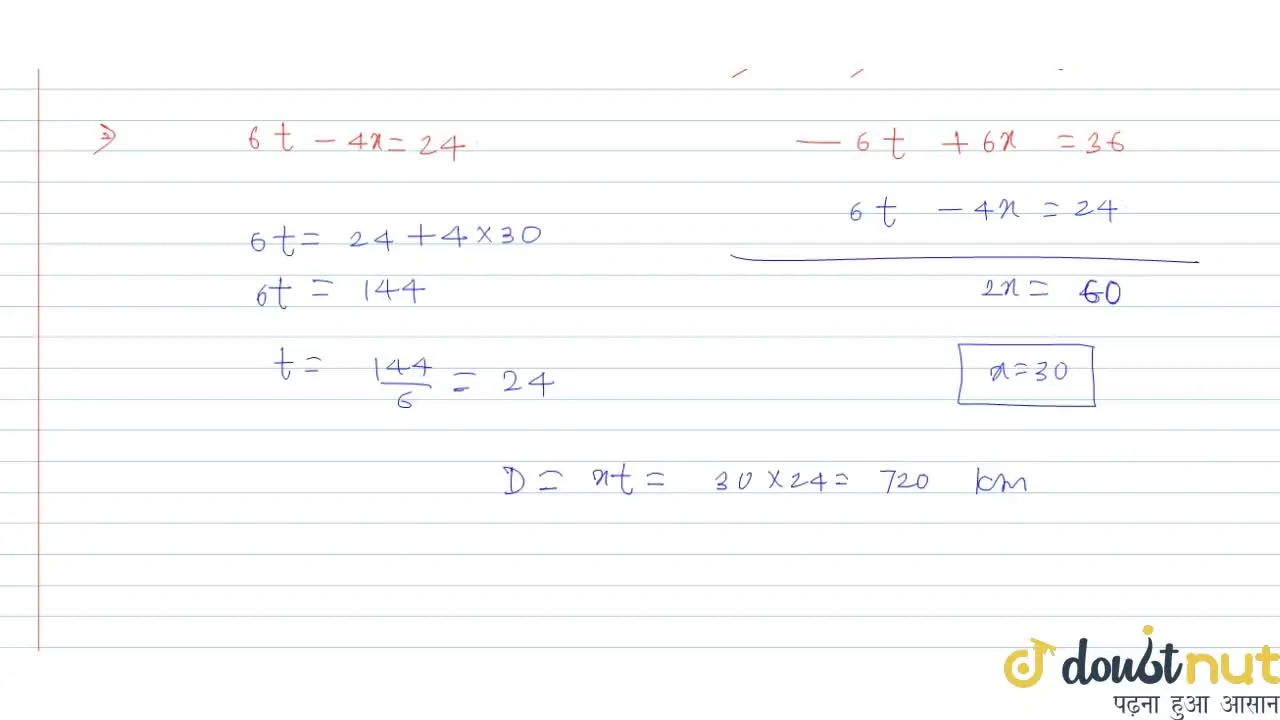 ⇒ 6t - 4x = 24
- 6t + 6x = 36
6t - 4x = 24
6t = 24 + 4 × 30
6t = 144
2x = 60
t = 144/6 = 24
x = 30
D = xt = 30 × 24 = 720 km
doubtnut
पढ़ना हुआ आसान